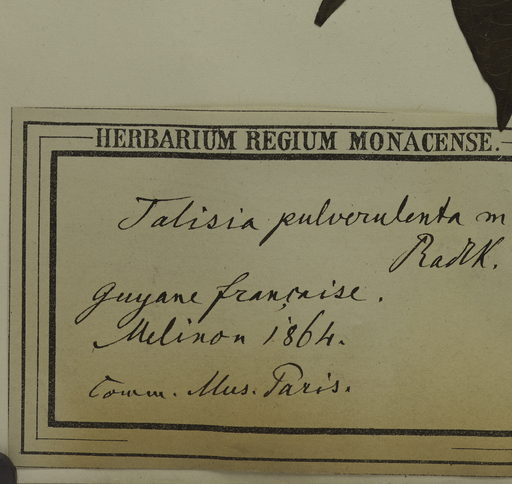 HERBARIUM REGIUM MONACENSE.
Talisia pulverulenta m
Radlk.
Guyane française.
Melinon 1864.
Comm. Mus. Paris.